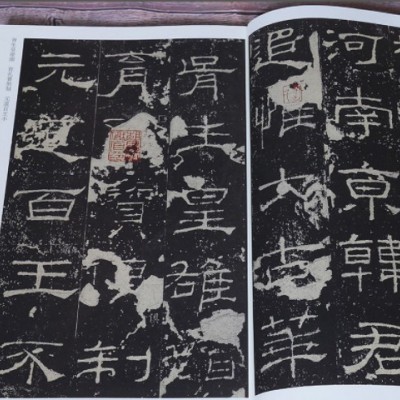 河南京韓君
追惟太古華
胥生皇雄顏
育寶俱制
元道百王不